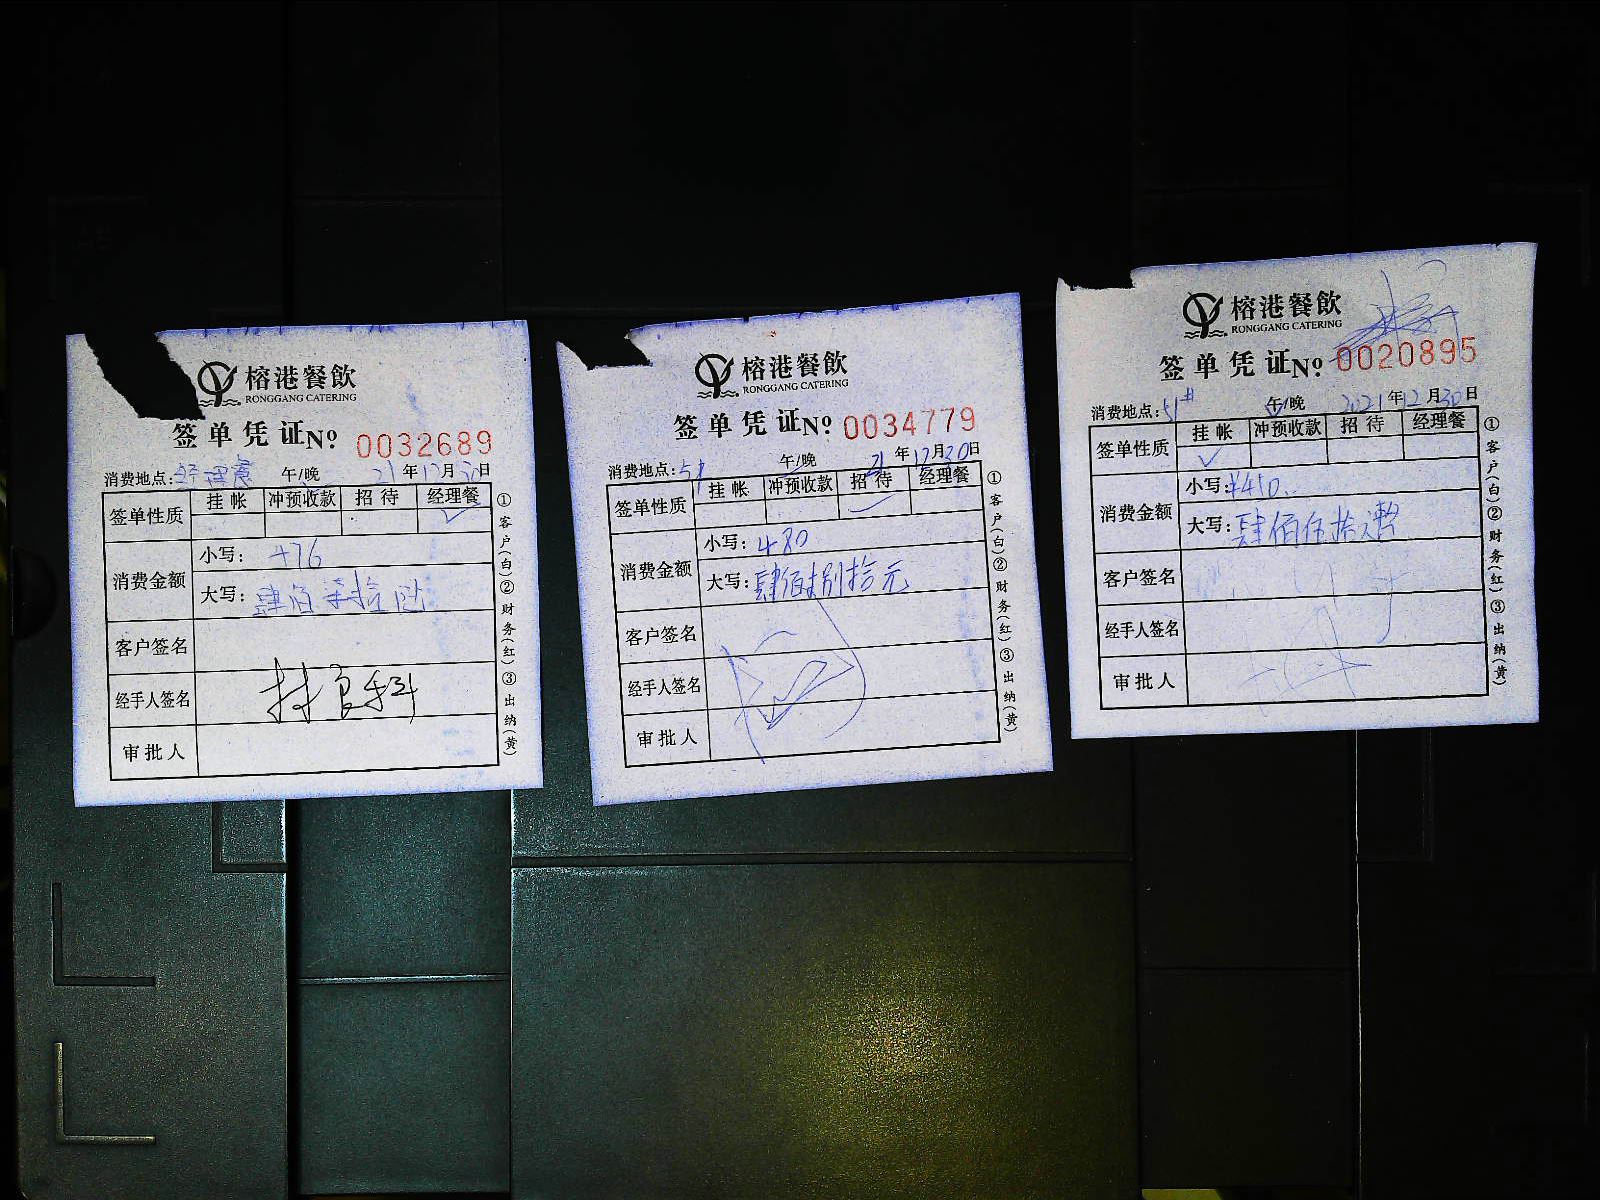 榕港餐飲
RONGGANG CATERING
签单凭证 No 0032689
消费地点: 午/晚 21年12月30日
签单性质 挂帐 冲预收款 招待 经理餐
✓
消费金额
小写: 476
大写: 肆佰柒拾陆
客户签名
经手人签名
审批人
①客户(白)②财务(红)③出纳(黄)
榕港餐飲
RONGGANG CATERING
签单凭证 No 0034779
消费地点: 午/晚 21年12月30日
签单性质 挂帐 冲预收款 招待 经理餐
消费金额
小写: 480
大写: 肆佰捌拾元
客户签名
经手人签名
审批人
①客户(白)②财务(红)③出纳(黄)
榕港餐飲
RONGGANG CATERING
签单凭证 No 0020895
消费地点: 51# 午/晚 2021年12月30日
签单性质 挂帐 冲预收款 招待 经理餐
✓
消费金额
小写: ¥450
大写: 肆佰伍拾元整
客户签名
经手人签名
审批人
①客户(白)②财务(红)③出纳(黄)